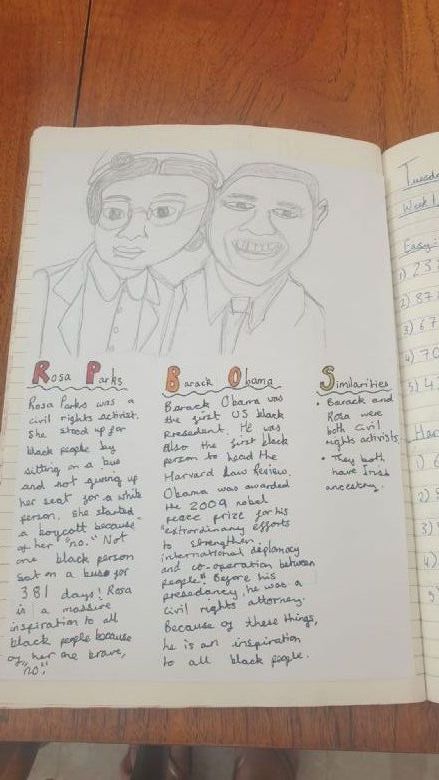 Rosa Parks
Rosa Parks was a
civil rights activist.
She stood up for
black people by
sitting on a bus
and not giving up
her seat for a white
person. She started
a boycott because
of her "no." Not
one black person
sat on a bus for
381 days! Rosa
is a massive
inspiration to all
black people because
of her one brave,
"no".
Barack Obama
Barack Obama was
the first US black
presedent. He was
Also the first black
person to head the
Harvard Law Review.
Obama was awarded
the 2009 nobel
peace prize for his
"extrordinary efforts
to strengthen
international deplomacy
and co-operation between
people". Before his
presedency, he was a
civil rights attorney.
Because of these things,
he is an inspiration
to all black people.
Similarities
• Barack and
Rosa were
both civil
rights activists
• They both
have Irish
ancestory.
Week 1
Easy:
1)
2) 87
3) 67
4) 70
5)
1)
2)
3)
4)